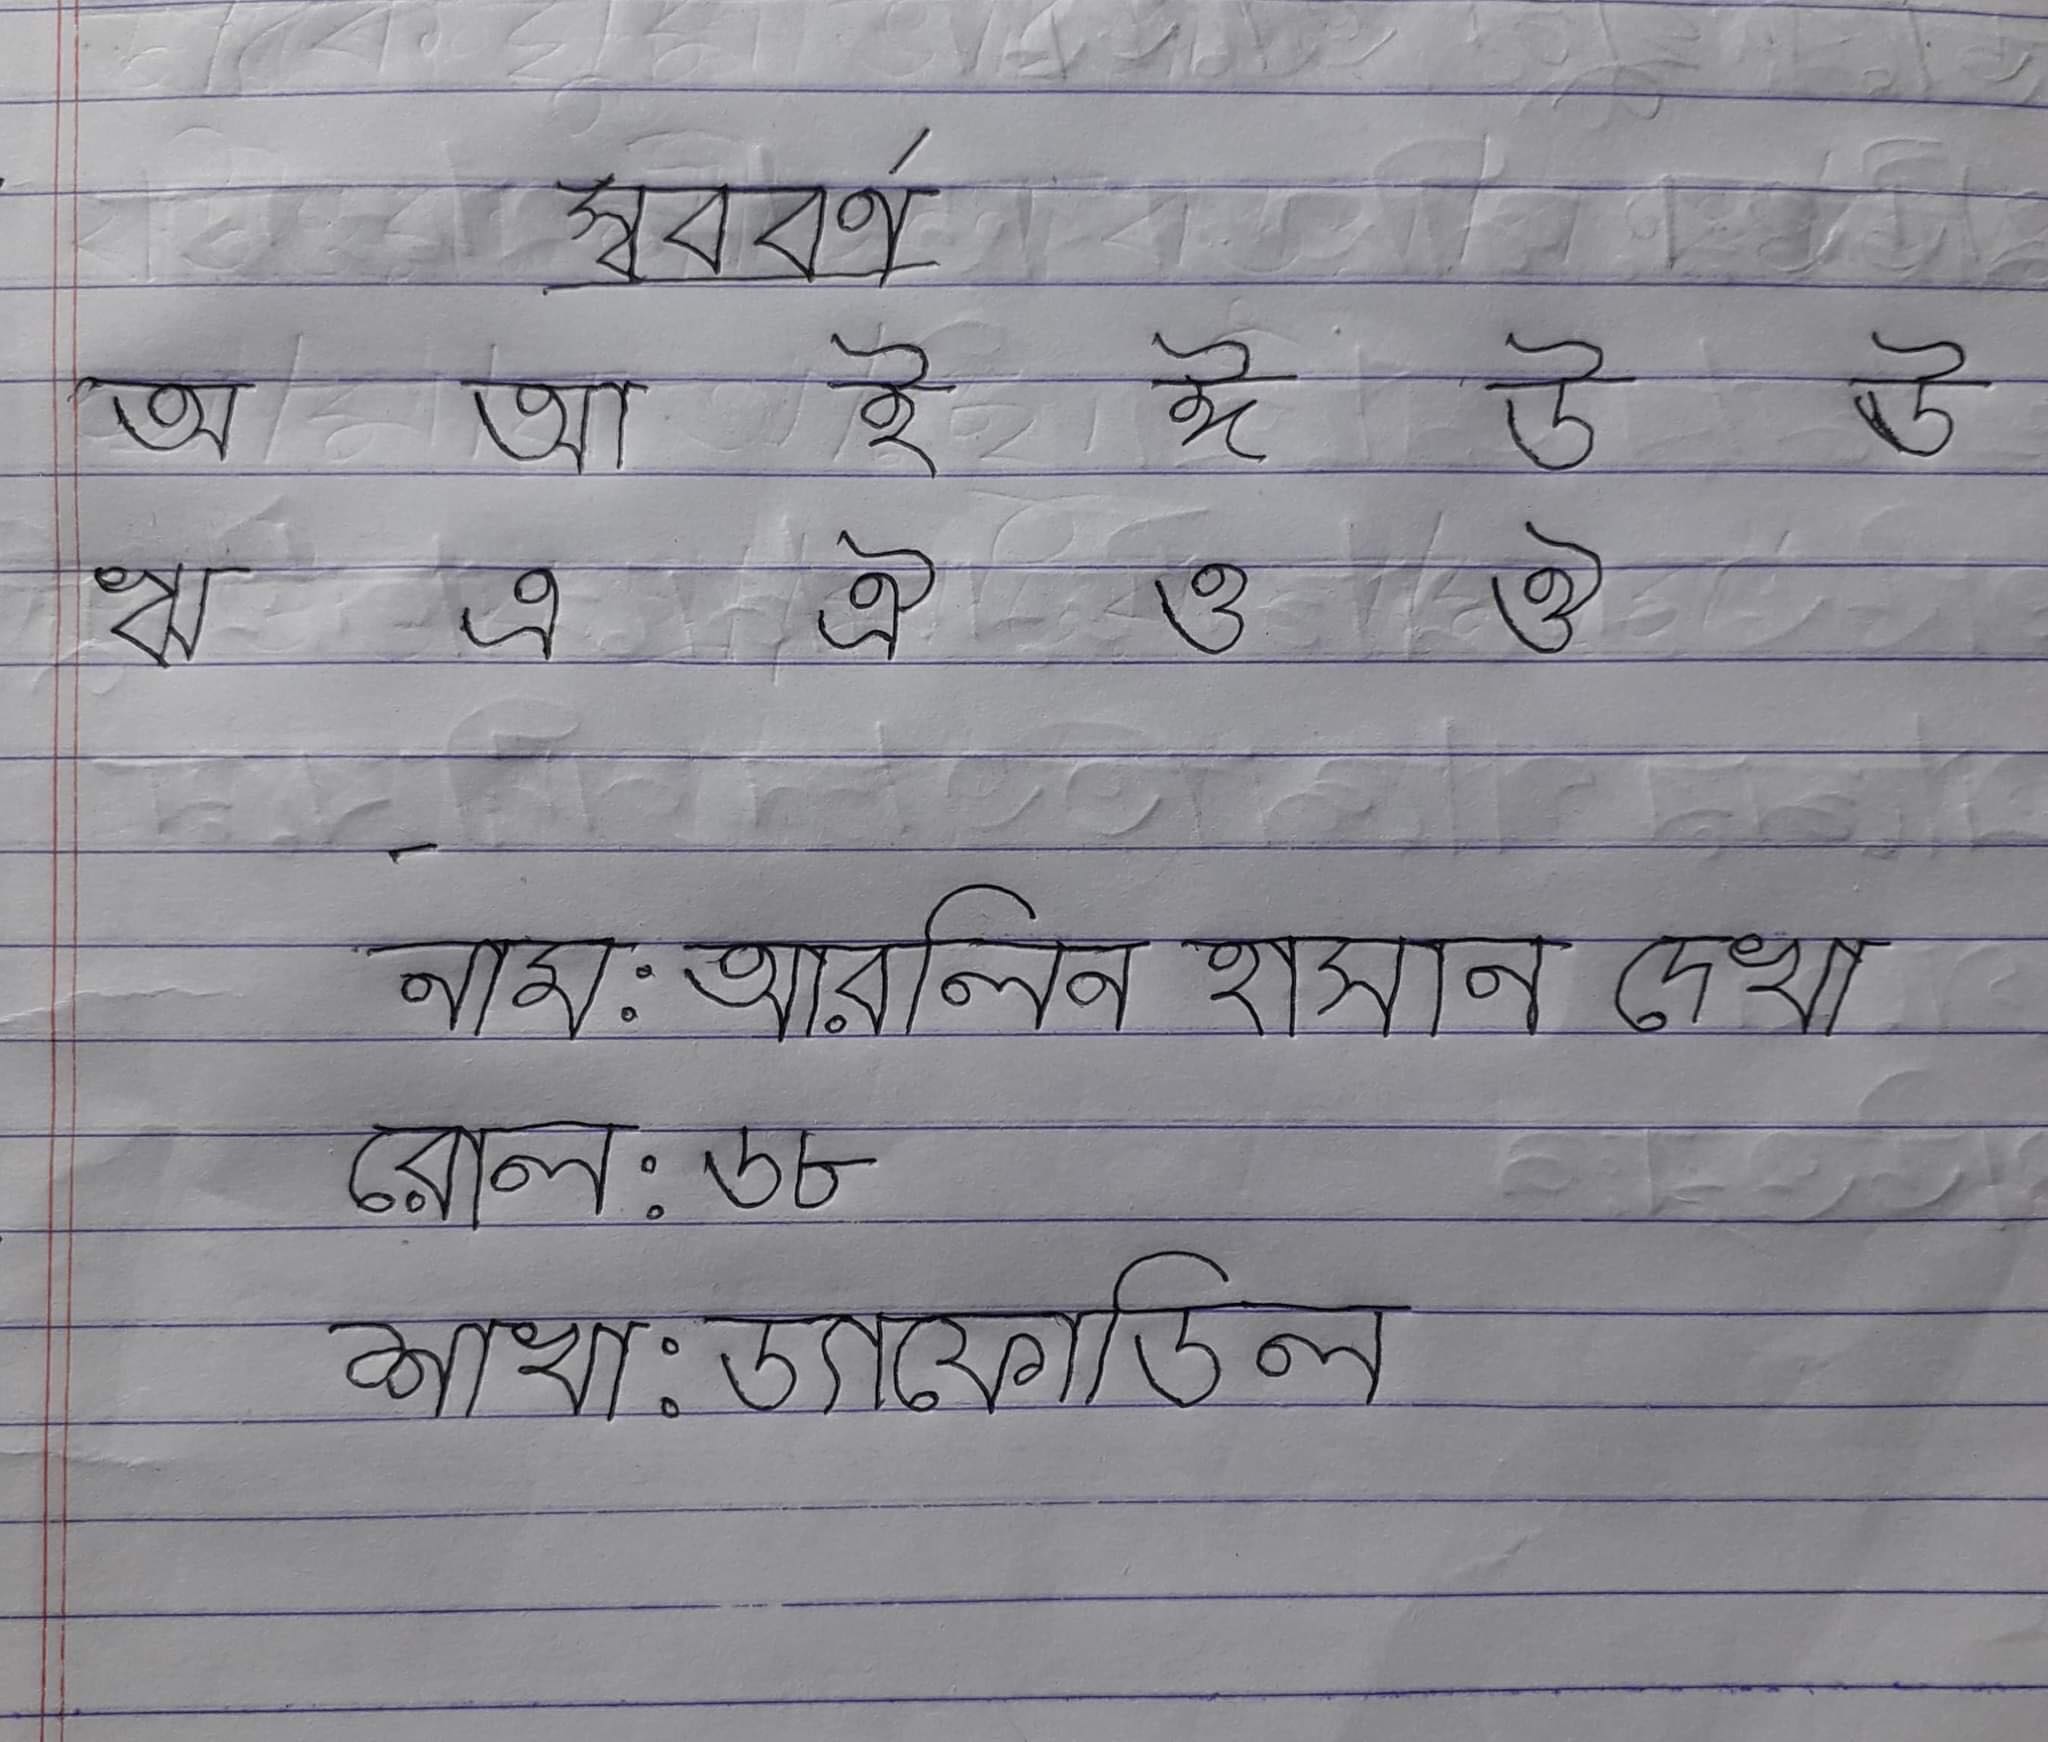 স্ববর্বণ
অ আ ই ঈ উ উ
ঋ এ ঐ ও ঔ
নাম: আরলিন হাসান দেখা
রোল: ৬৮
শাখা: ড্যাফোডিল